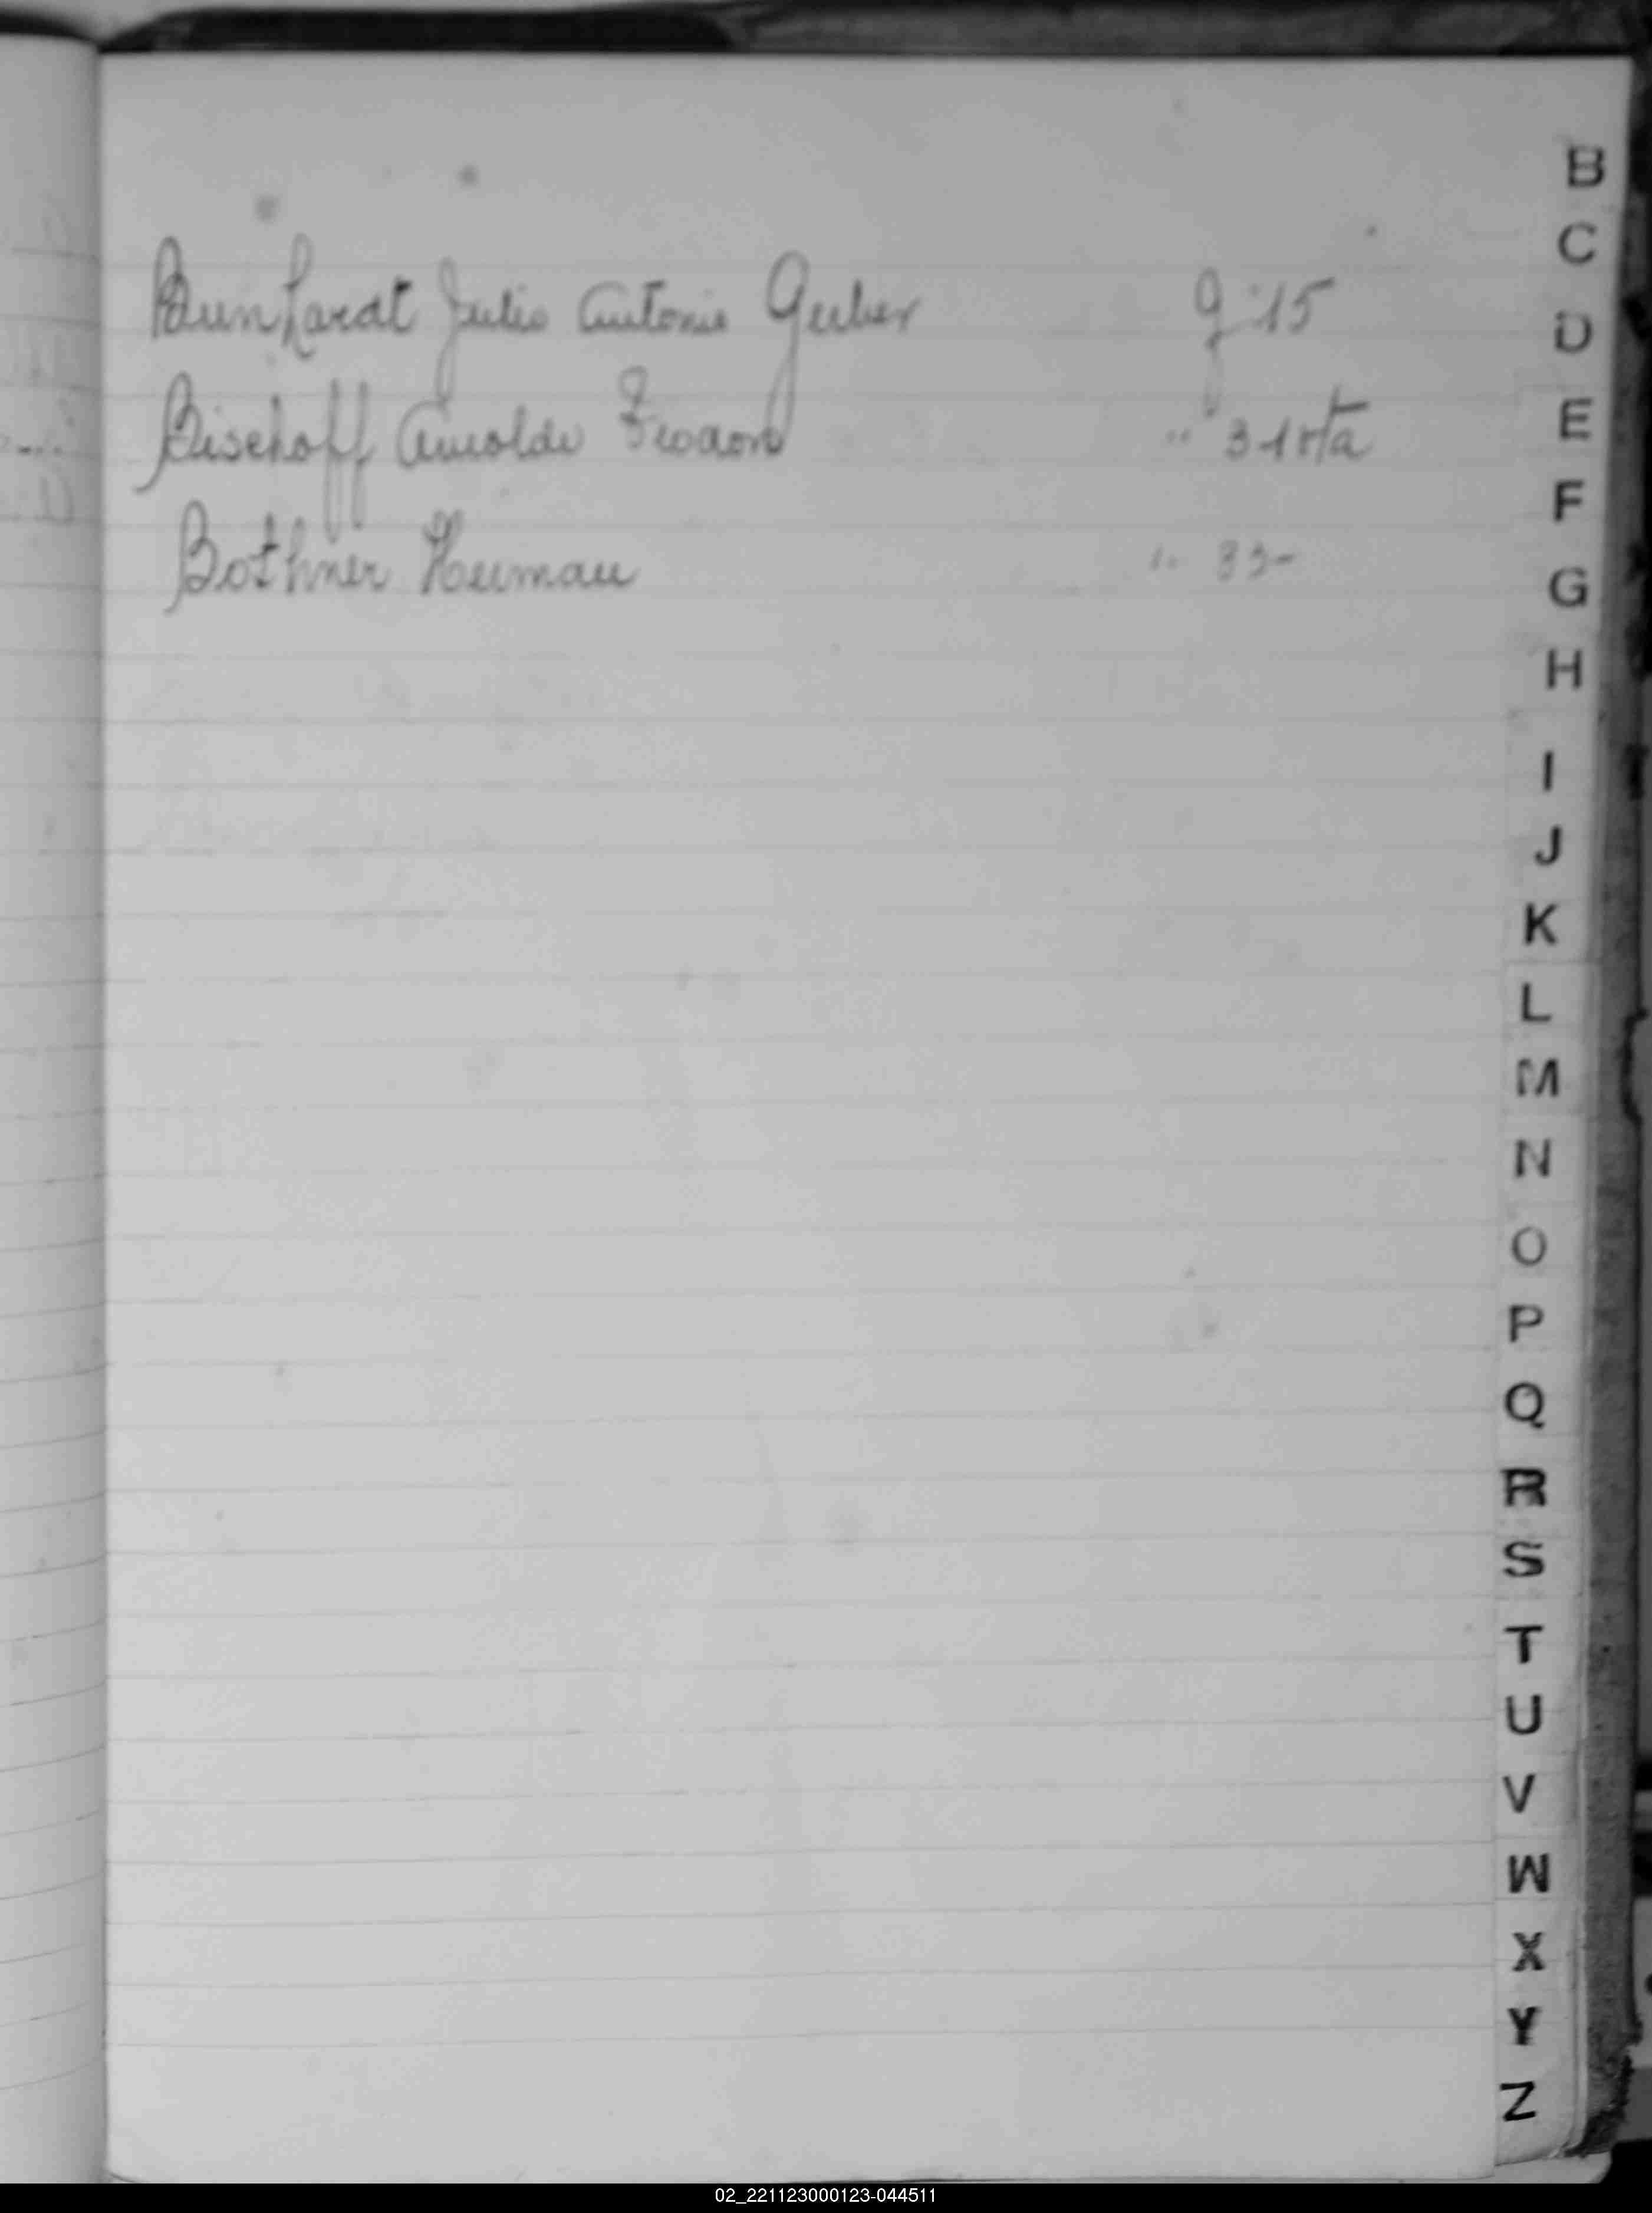 Bernhardt Julio Antonio Guber g. 15
Bischoff Arnoldo Feodor " 31 vta
Bothner Herman 33
B
C
D
E
F
G
H
I
J
K
L
M
N
O
P
Q
R
S
T
U
V
W
X
Y
Z
02_221123000123-044511